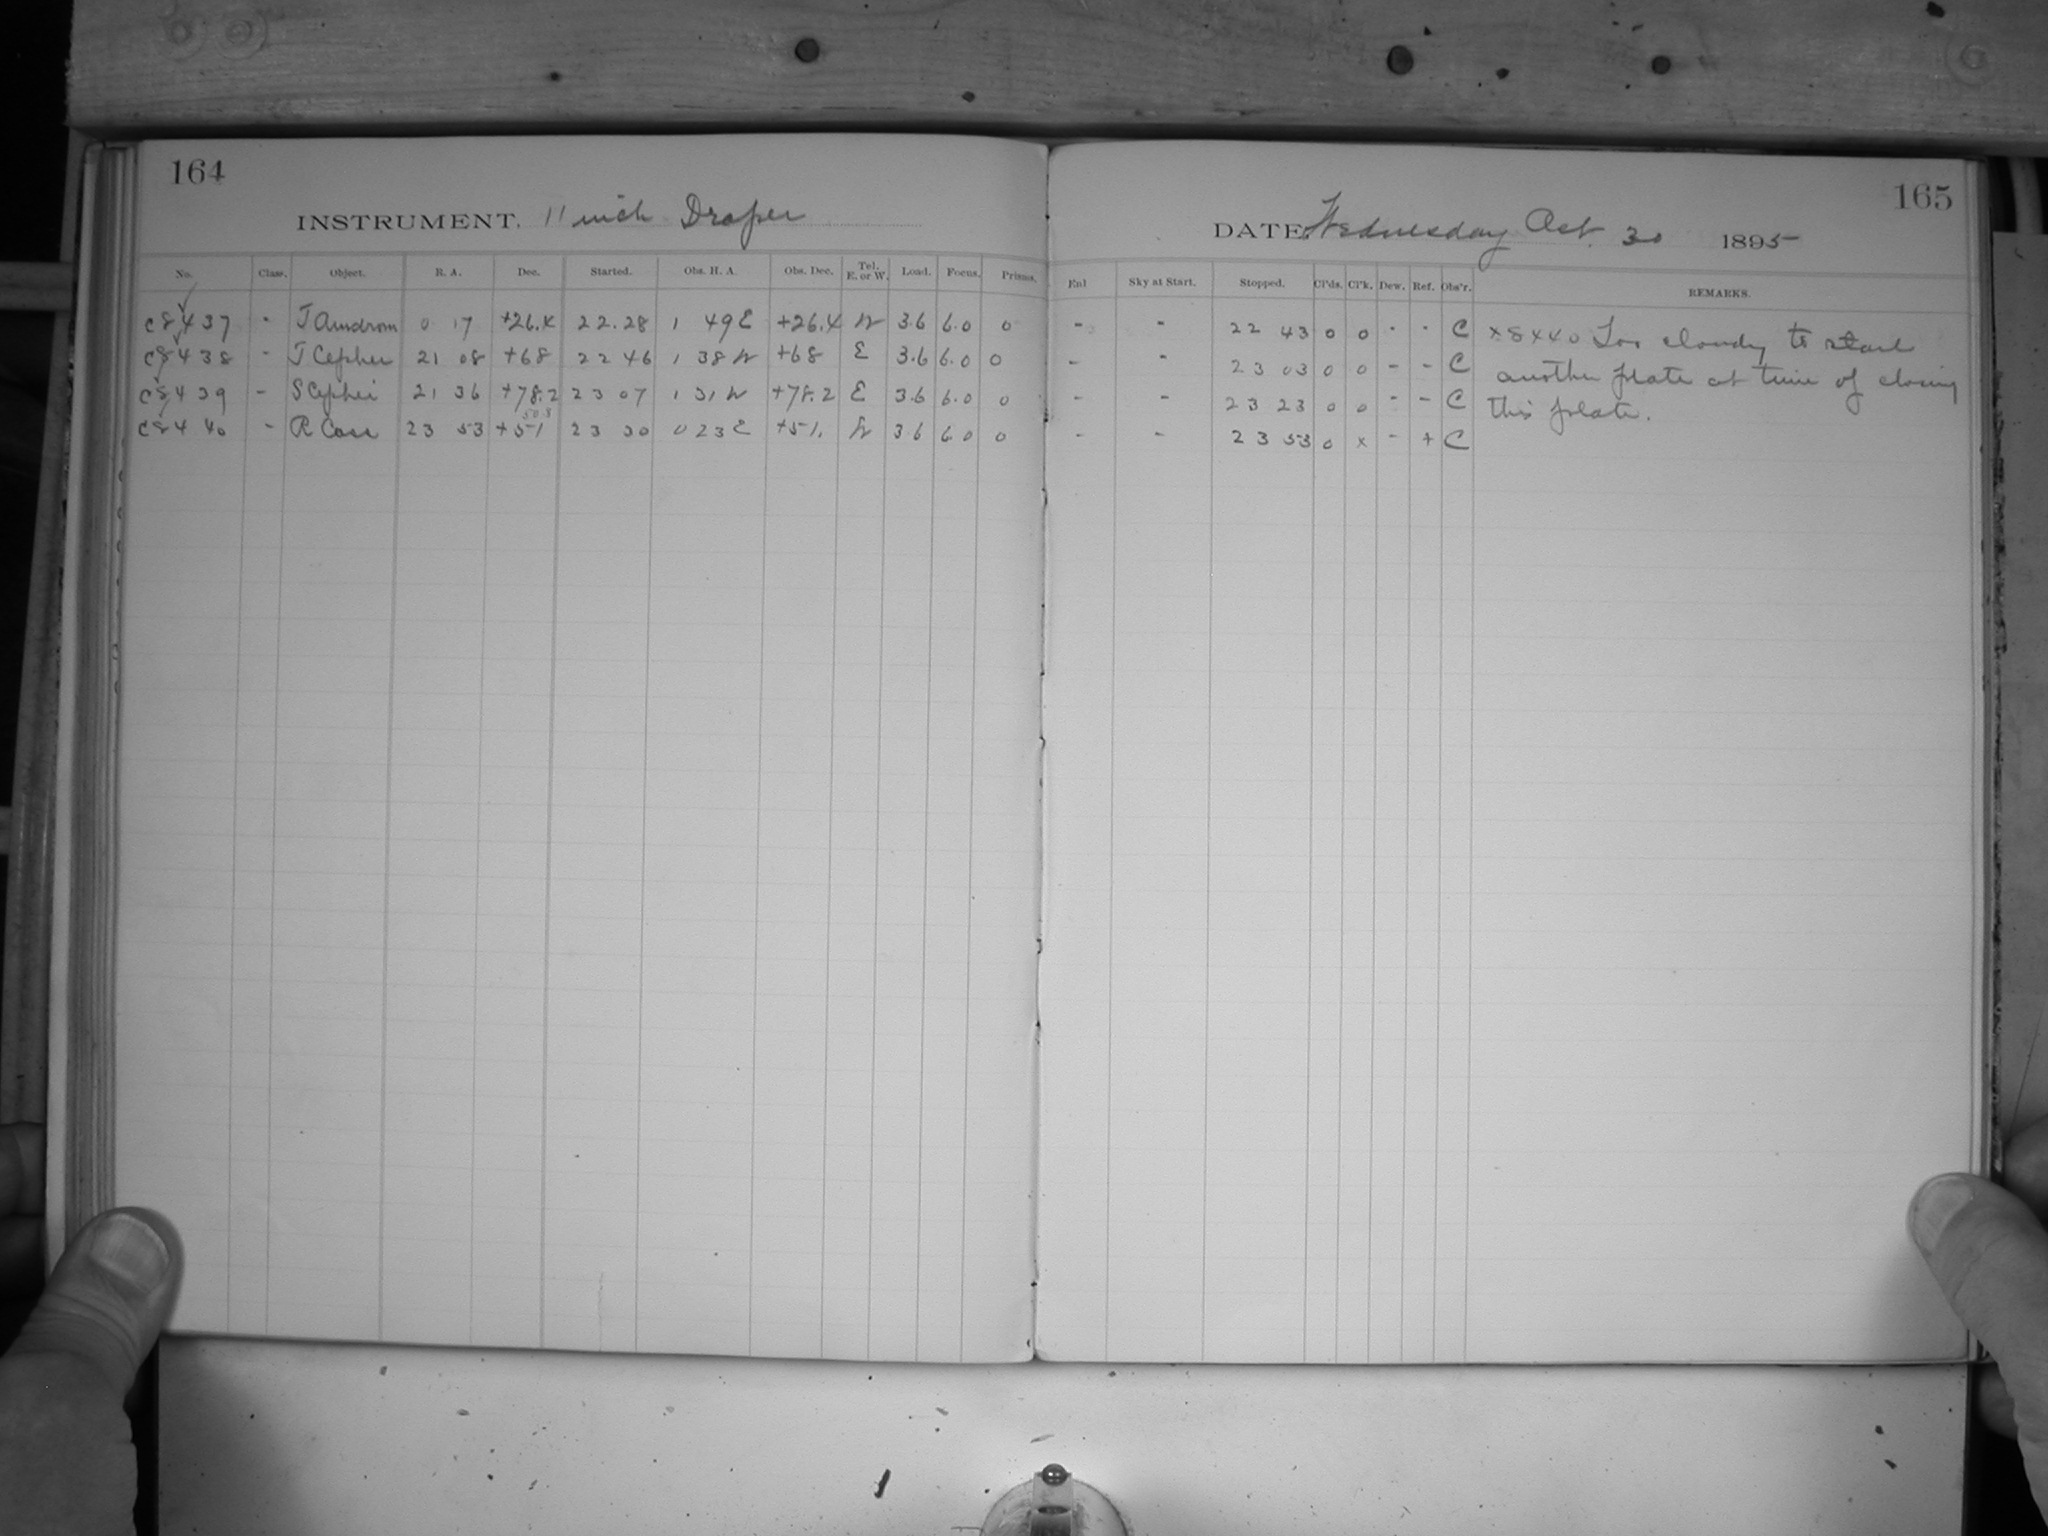 164
INSTRUMENT. 11 inch Draper
No. Class. Object. R. A. Dec. Started. Obs. H. A. Obs. Dec. Tel. E. or W. Load. Focus. Prisms.
c8437 - T Amdrom 0 17 +26.4 22.28 1 49 E +26.4 W 3.6 6.0 0
c8438 - T Cephei 21 08 +68 22 46 1 38 W +68 E 3.6 6.0 0
c8439 - S Cephei 21 36 +78.2 23 07 1 31 W +78.2 E 3.6 6.0 0
50.8
c8440 - R Cass 23 53 +51 23 30 0 23 E +51. W 3.6 6.0 0
165
DATE Wednesday Oct. 30 1895
Enl Sky at Start. Stopped. Cl'ds. Cl'k. Dew. Ref. Obs'r. REMARKS.
- - 22 43 0 0 - - C x8440 Too cloudy to start
- - 23 03 0 0 - - C another plate at time of closing
- - 23 23 0 0 - - C this plate.
- - 23 53 0 x - + C